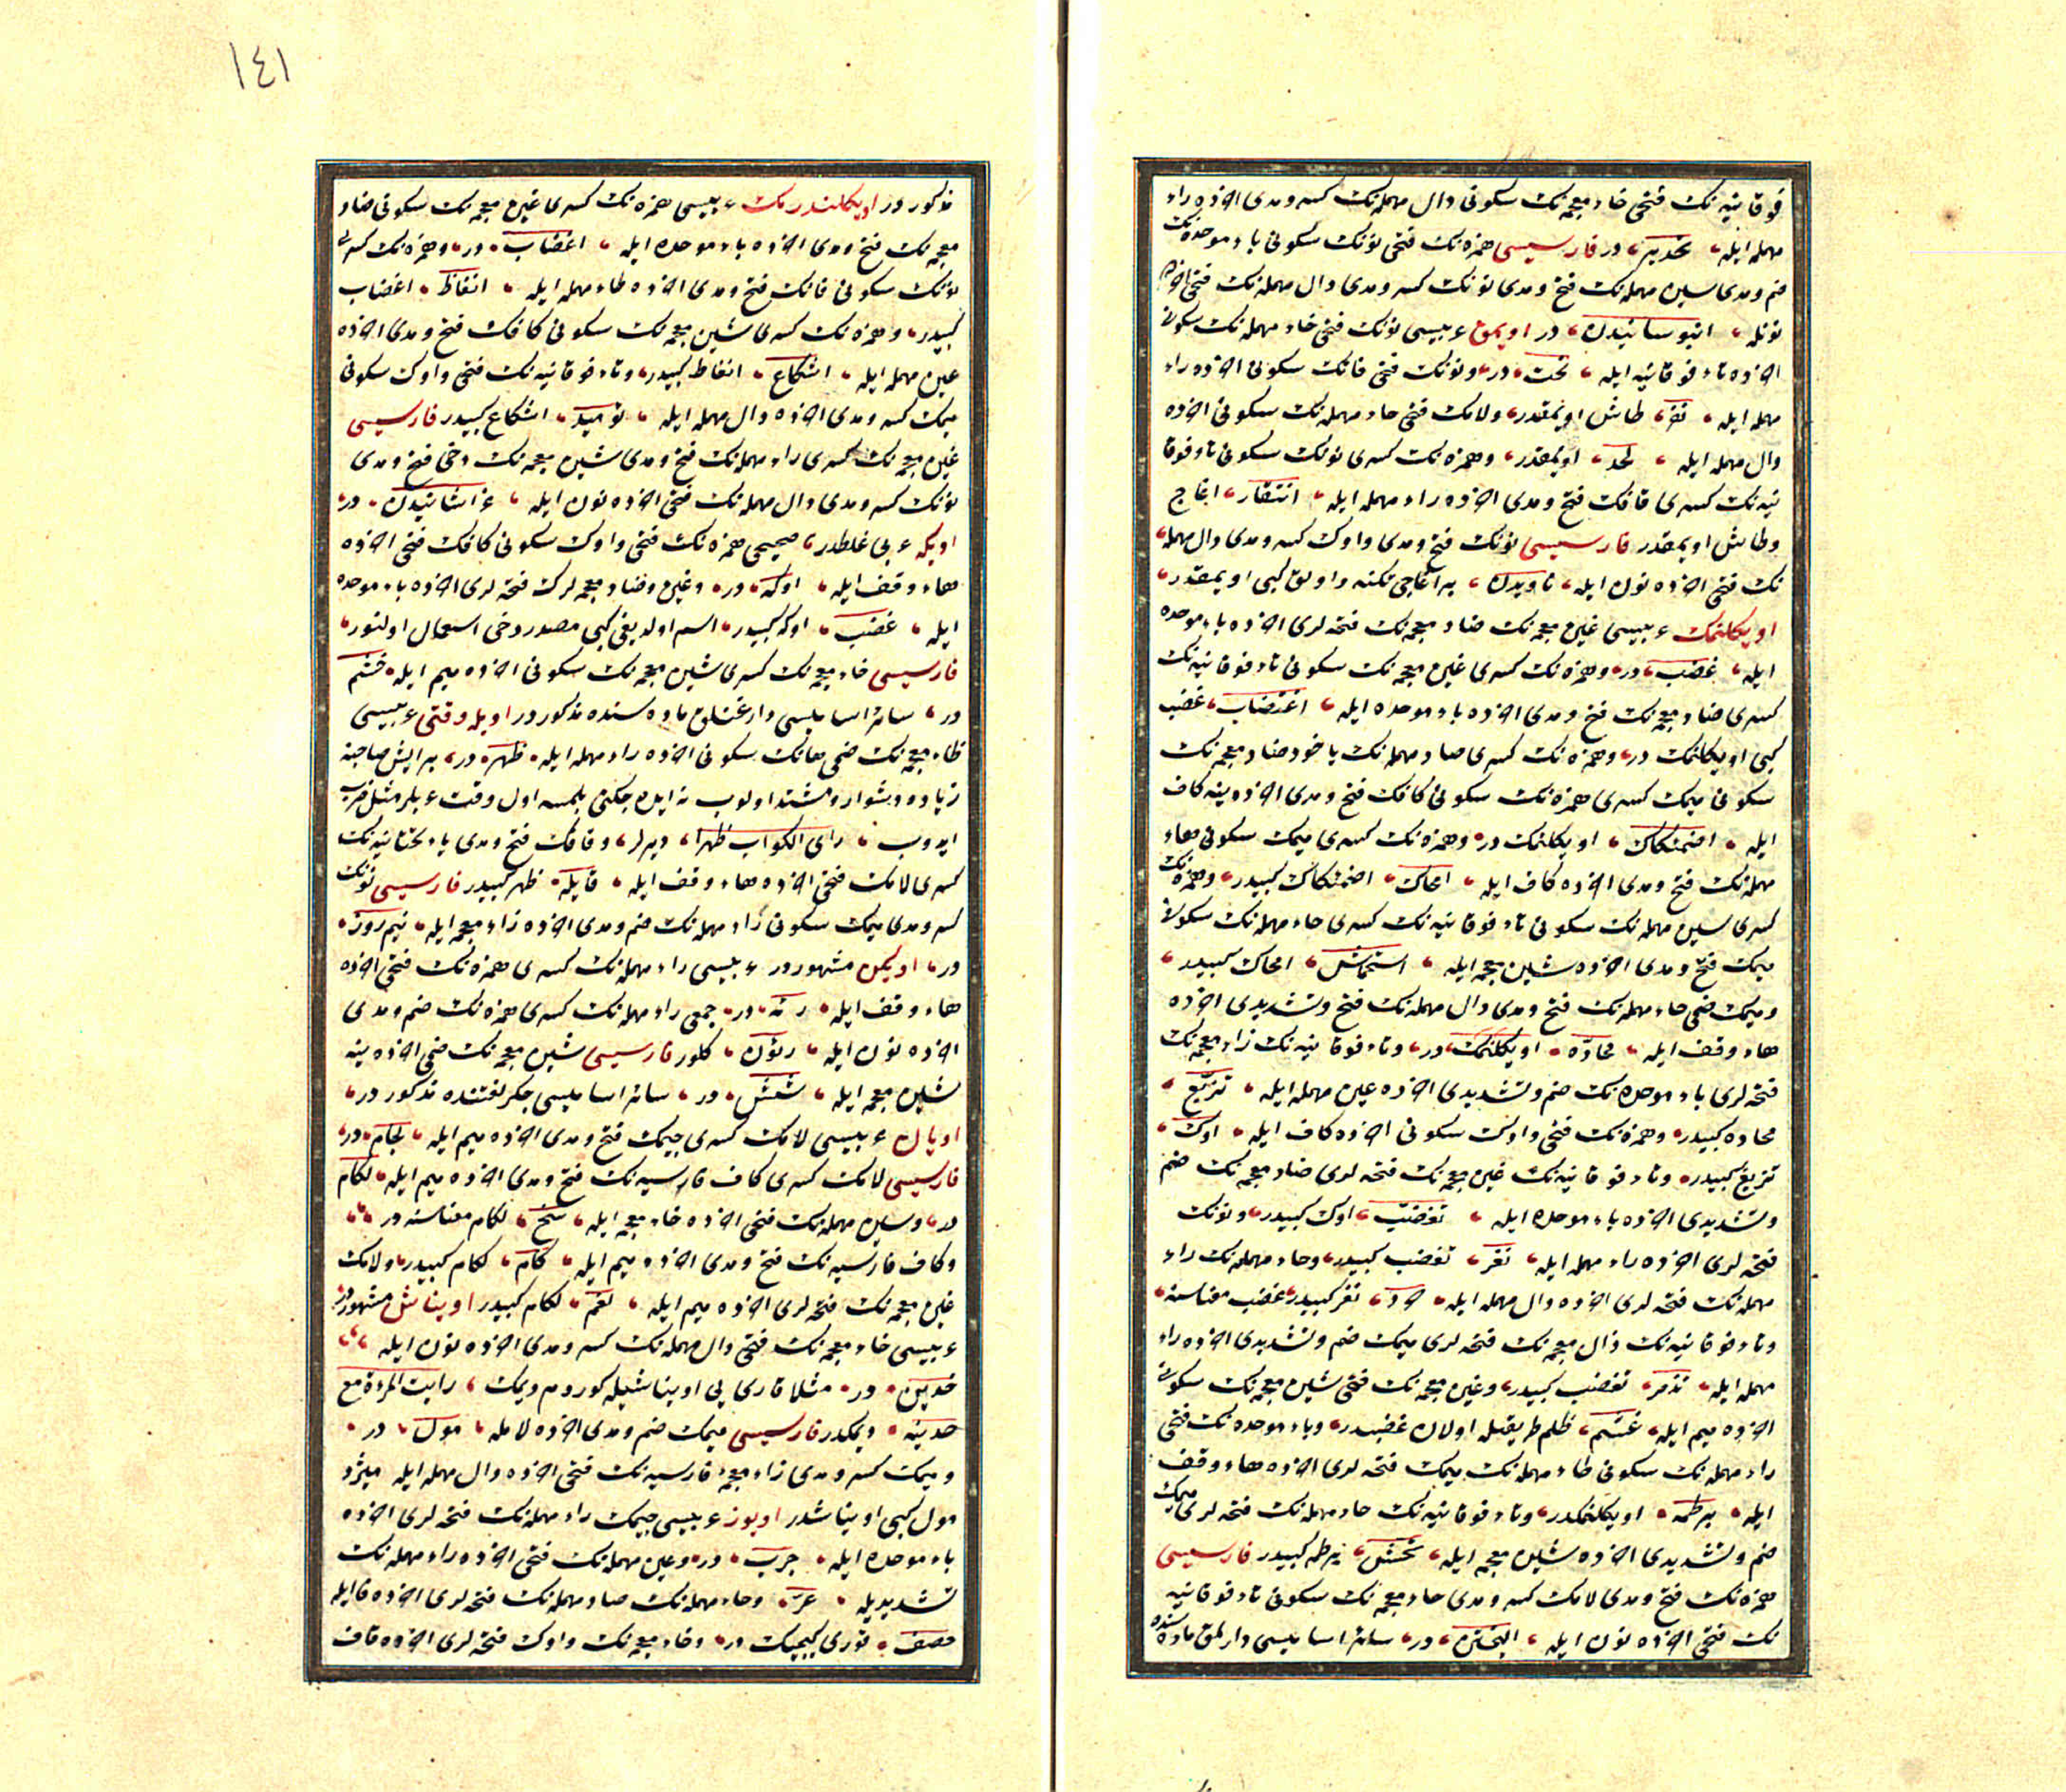 فوقانیه نك فتحی خاء معجمه نك سكونی دال مهمله نك كسر و مدی اخرده راء
مهمله ایله تخدیر در فارسیسی همزه نك فتحی نونك سكونی باء موحده نك
ضم و مدی سین مهمله نك فتح و مدی نونك كسر و مدی دال مهمله نك فتحی اخرده
نونله انبوسانیدن در اویمق عربیسی نونك فتحی خاء مهمله نك سكونی
اخرده تاء فوقانیه ایله نحت در و نونك فتحی قافك سكونی اخرده راء
مهمله ایله نقر طاش اویمقدر و لامك فتحی حاء مهمله نك سكونی اخرده
دال مهمله ایله لحد اویمقدر و همزه نك كسری نونك سكونی تاء فوقا
نیه نك كسری قافك فتح و مدی اخرده راء مهمله ایله انتقار اغاج
و طاش اویمقدر فارسیسی نونك فتح و مدی واوك كسر و مدی دال مهمله
نك فتحی اخرده نون ایله ناویدن بر اغاجی تكنه و اولق كبی اویمقدر
اویكلنمك عربیسی غین معجمه نك ضاد معجمه نك فتحه لری اخرده باء موحده
ایله غضب در و همزه نك كسری غین معجمه نك سكونی تاء فوقانیه نك
كسری ضاد معجمه نك فتح و مدی اخرده باء موحده ایله اغتضاب غضب
كبی اویكلنمك در و همزه نك كسری صاد مهمله نك یا خود ضاد معجمه نك
سكونی میمك كسری همزه نك سكونی كافك فتح و مدی اخرده ینه كاف
ایله اضمئكاك اویكلنمك در و همزه نك كسری میمك سكونی حاء
مهمله نك فتح و مدی اخرده كاف ایله امحاك اضمئكاك كبیدر و همزه نك
كسری سین مهمله نك سكونی تاء فوقانیه نك كسری حاء مهمله نك سكونی
میمك فتح و مدی اخرده شین معجمه ایله استحماش امحاك كبیدر
و میمك ضمی حاء مهمله نك فتح و مدی دال مهمله نك فتح و تشدیدی اخرده
هاء وقف ایله محادّه اویكلنمك در و تاء فوقانیه نك زاء معجمه نك
فتحه لری باء موحده نك ضم و تشدیدی اخرده عین مهمله ایله تزبّع
محاده كبیدر و همزه نك فتحی واوك سكونی اخرده كاف ایله اوك
تزبع كبیدر و تاء فوقانیه نك غین معجمه نك فتحه لری ضاد معجمه نك ضم
و تشدیدی اخرده باء موحده ایله تغضّب اوك كبیدر و نونك
فتحه لری اخرده راء مهمله ایله نغر تغضب كبیدر و حاء مهمله نك راء
مهمله نك فتحه لری اخرده دال مهمله ایله حرد نغر كبیدر غضب معناسنه
و تاء فوقانیه نك ذال معجمه نك فتحه لری میمك ضم و تشدیدی اخرده راء
مهمله ایله تذمّر تغضب كبیدر و غین معجمه نك فتحی شین معجمه نك سكونی
اخرده میم ایله غشم ظلم طریقیله اولان غضبدر و باء موحده نك فتحی
راء مهمله نك سكونی طاء مهمله نك میمك فتحه لری اخرده هاء وقف
ایله برطمه اویكلنمكدر و تاء فوقانیه نك حاء مهمله نك فتحه لری میمك
ضم و تشدیدی اخرده شین معجمه ایله تحمّش برطمه كبیدر فارسیسی
همزه نك فتح و مدی لامك كسر و مدی خاء معجمه نك سكونی تاء فوقانیه
نك فتحی اخرده نون ایله الیختن در سائر اسامیسی دارلمق ماده سنده
مذكور در اویكلندرمك عربیسی همزه نك كسری غین معجمه نك سكونی ضاد
معجمه نك فتح و مدی اخرده باء موحده ایله اغضاب در و همزه نك كسری
نونك سكونی فانك فتح و مدی اخرده طاء مهمله ایله انفاط اغضاب
كبیدر و همزه نك كسری شین معجمه نك سكونی كافك فتح و مدی اخرده
عین مهمله ایله اشكاع انفاط كبیدر و تاء فوقانیه نك فتحی واوك سكونی
میمك كسر و مدی اخرده دال مهمله ایله تومید اشكاع كبیدر فارسیسی
غین معجمه نك كسری راء مهمله نك فتح و مدی شین معجمه نك دخی فتح و مدی
نونك كسر و مدی دال مهمله نك فتحی اخرده نون ایله غراشانیدن در
اویكه عربی غلطدر صحیحی همزه نك فتحی واوك سكونی كافك فتحی اخرده
هاء وقف ایله اوكه در و غین و ضاد معجمه لرك فتحه لری اخرده باء موحده
ایله غضب اوكه كبیدر اسم اولدیغی كبی مصدر دخی استعمال اولنور
فارسیسی خاء معجمه نك كسری شین معجمه نك سكونی اخرده میم ایله خشم
در سائر اسامیسی دارغنلق ماده سنده مذكور در اویله وقتی عربیسی
ظاء معجمه نك ضمی هانك سكونی اخرده راء مهمله ایله ظهر در بر ایش صاحبنه
زیاده دشوار و مشتد اولوب نه ایده جكنی بلمسه اول وقت عربلر مثل ضرب
ایدوب رای الكواكب ظهرا دیرلر و قافك فتح و مدی یاء تحتانیه نك
كسری لامك فتحی اخرده هاء وقف ایله قایله ظهر كبیدر فارسیسی نونك
كسر و مدی میمك سكونی راء مهمله نك ضم و مدی اخرده زاء معجمه ایله نیم روز
در اویكن مشهور در عربیسی راء مهمله نك كسری همزه نك فتحی اخرده
هاء وقف ایله رئه در جمعی راء مهمله نك كسری همزه نك ضم و مدی
اخرده نون ایله رئون كلور فارسیسی شین معجمه نك ضمی اخرده ینه
شین معجمه ایله شش در سائر اسامیسی جكر لغتنده مذكور در
اویان عربیسی لامك كسری جیمك فتح و مدی اخرده میم ایله لجام در
فارسیسی لامك كسری كاف فارسیه نك فتح و مدی اخرده میم ایله لكام
در و سین مهمله نك فتحی اخرده خاء معجمه ایله سخ لكام معناسنه در
و كاف فارسیه نك فتح و مدی اخرده میم ایله كام لكام كبیدر و لامك
غین معجمه نك فتحه لری اخرده میم ایله لغم لكام كبیدر اویناش مشهور در
عربیسی خاء معجمه نك فتحی دال مهمله نك كسر و مدی اخرده نون ایله
خدین در مثلا قاری یی اویناشیله كوردم دیمك رایت المرءة مع
خدینه دیمكدر فارسیسی میمك ضم و مدی اخرده لامله مول در
و میمك كسر و مدی زاء معجمه فارسیه نك فتحی اخرده دال مهمله ایله میژد
مول كبی اویناشدر اویوز عربیسی جیمك راء مهمله نك فتحه لری اخرده
باء موحده ایله جرب در و عین مهمله نك فتحی اخرده راء مهمله نك
تشدیدیله عرّ و حاء مهمله نك صاد مهمله نك فتحه لری اخرده فا ایله
حصف قوری كیجیك در و خاء معجمه نك واوك فتحه لری اخرده قاف
١٤١